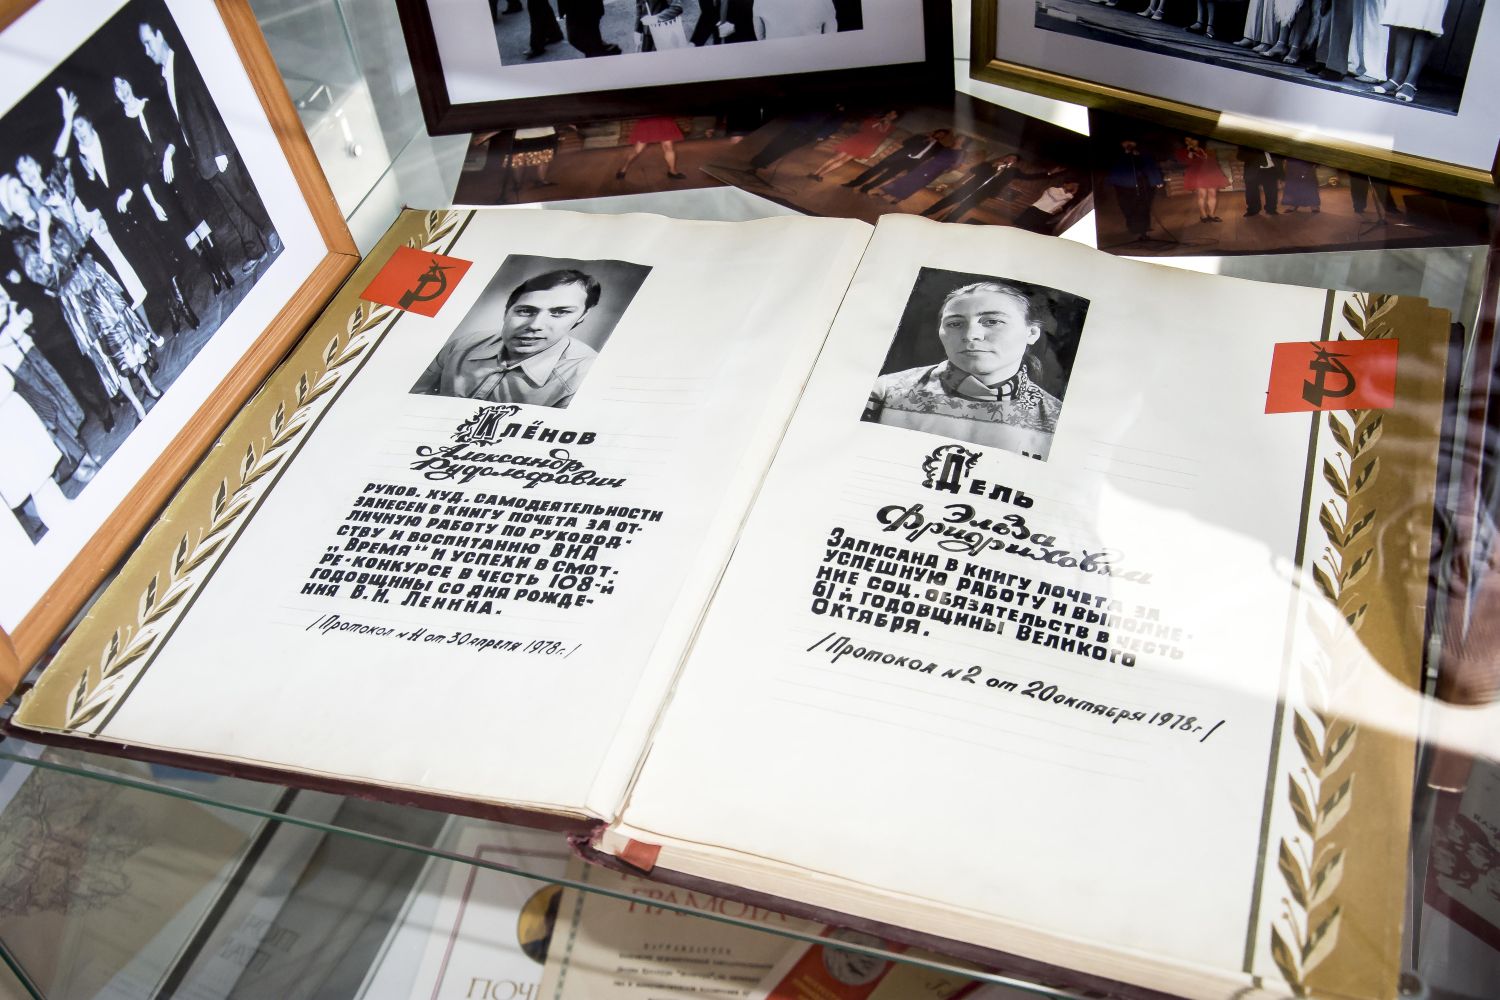 Клёнов
Александр
Рудольфович
руков. худ. самодеятельности
занесен в книгу почета за от-
личную работу по руковод-
ству и воспитанию ВНД
„Время“ и успехи в смот-
ре-конкурсе в честь 108-й
годовщины со дня рожде-
ния В.И. Ленина.
/Протокол № 11 от 30 апреля 1978г./
Дель
Эльза
Фридриховна
Записана в книгу почета за
успешную работу и выполне-
ние соц. обязательств в честь
61й годовщины Великого
Октября.
/Протокол № 2 от 20 октября 1978г/
ГРАМОТА
ПОЧ